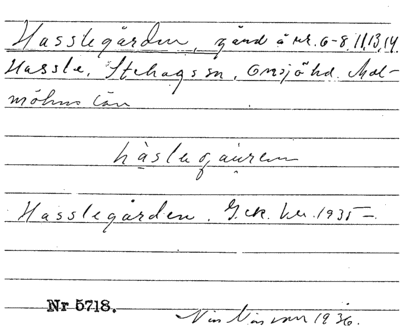 Hasslegården, gård å nr. 6-8, 11, 13, 14
Hassle, Stehags sn, Onsjö hd. Mal-
möhus län
Hasslegården. G.ek. ker. 1935 –
Nr 5718.
1936.